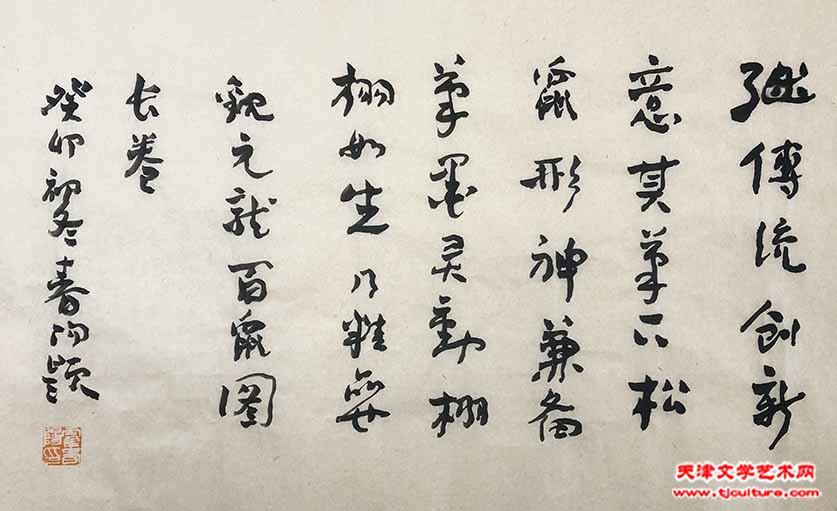 継傳统创新
意其筆下松
鼠形神兼俻
筆墨灵動栩
栩如生乃
元龙百鼠图
长卷
癸卯初冬春阳题
天津文学艺术网
www.tjculture.com